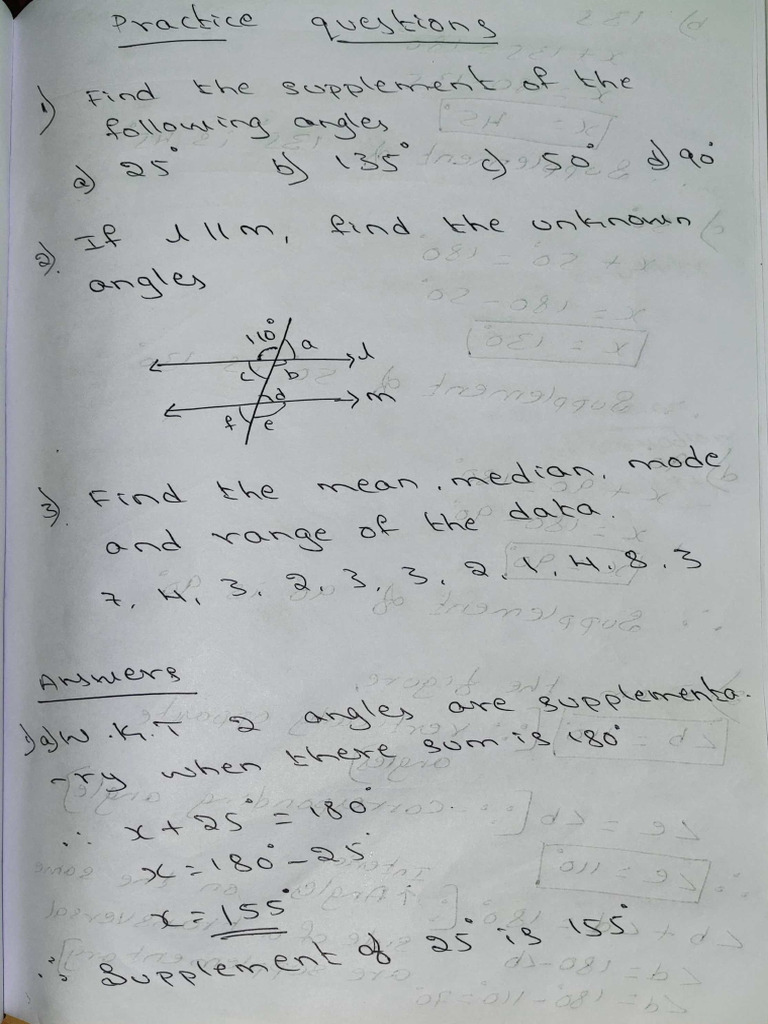 Practice questions
1) Find the supplement of the
following angles
a) 25° b) 135° c) 50° d) 90°
2). If l || m, find the unknown
angles
110° a l
c b
d m
f e
3). Find the mean, median, mode
and range of the data.
7, 4, 3, 2, 3, 3, 2, 1, 4, 8, 3
Answers
1)a) W.K.T 2 angles are supplementa-
-ry when there sum is 180°
∴ x + 25° = 180°
x = 180° - 25°
x = 155°
∴ Supplement of 25° is 155°